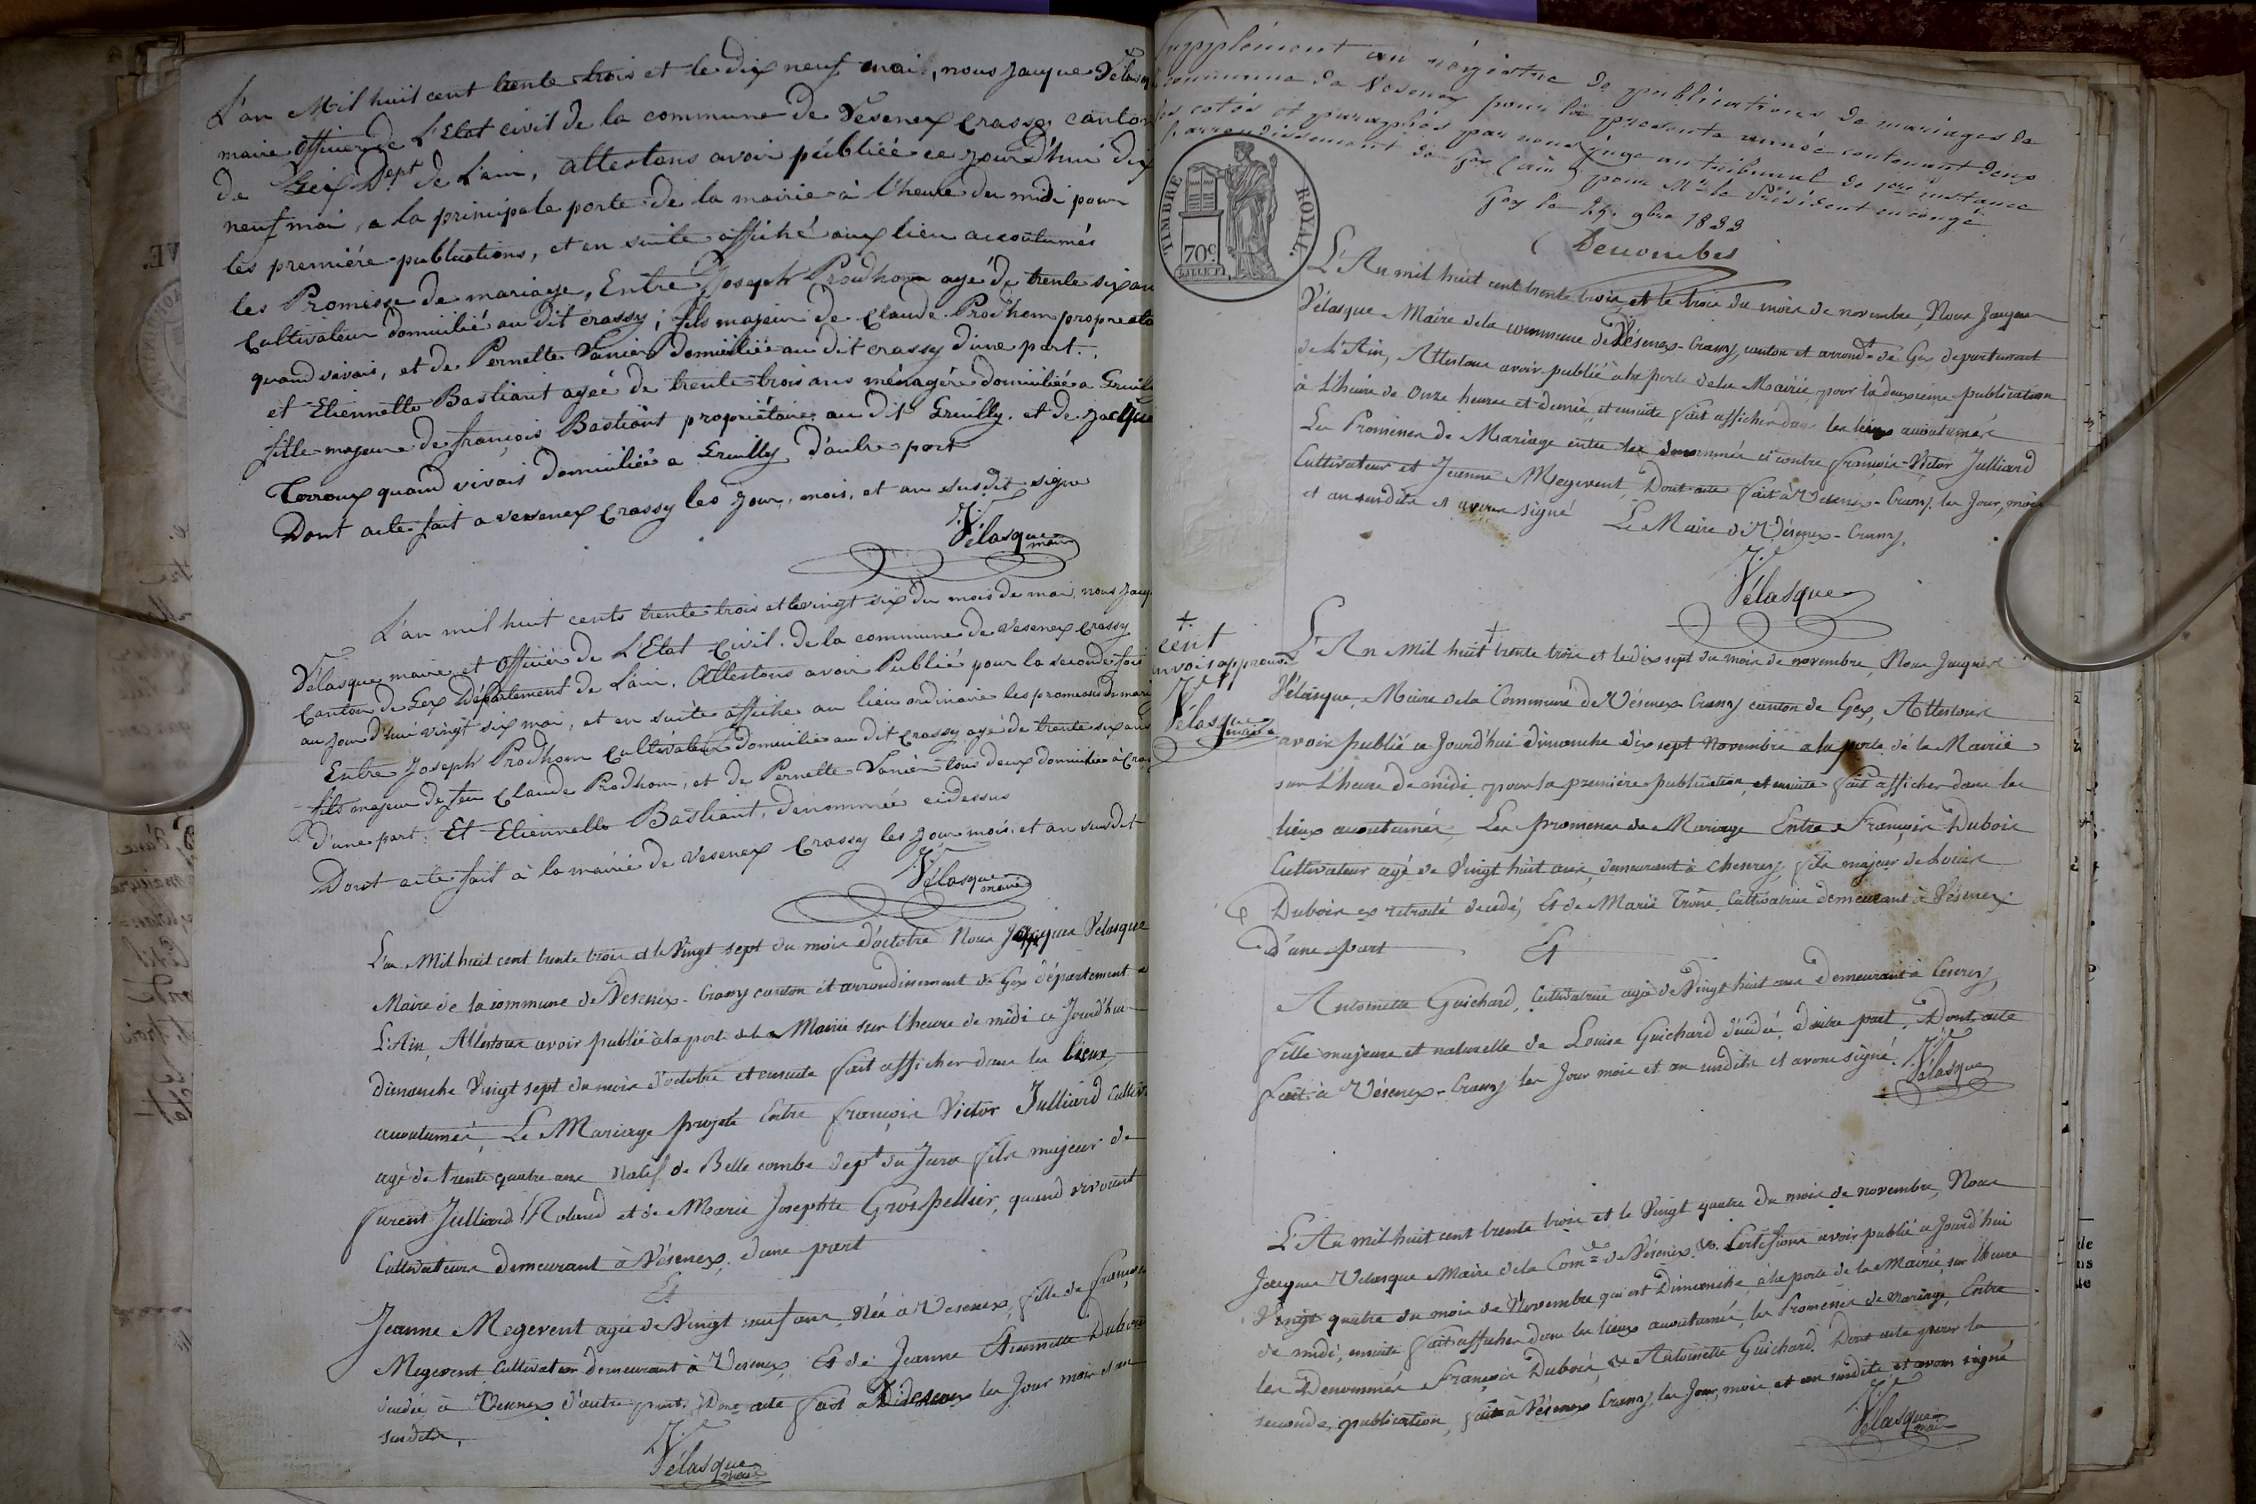 L'an Mil huit cent trente trois et le dix neuf mai, nous Jacque Vélasq
maire officier de L'Etat civil de la commune de Vesenex Crassy canton
de Gex Dept de L'ain, attestons avoir publiéé ce jour d'hui dix
neuf mai, a la principale porte de la mairie à l'heure du midi pour
les première publications, et en suite affiché aux lieu accoutumés
les Promesse de mariage, Entre Joseph Prodhom agé de trente six an
Cultivateur domicilié au dit crassy; fils majeur de Claude Prodhom propreeta
quand vivais, et de Pernette Vanier domiciliée au dit crassy d'une part.
et Etiennette Bastiant ageé de trente trois ans ménagère domiciliée a Gruilly
fille majeure de françois Bastiant propriétaire au dit Gruilly. et de Jacque
Terroux quand vivais domiciliée a Gruilly d'autre part
Dont acte fait a vesenex Crassy les jour, mois, et an susdit signe
Vélasque maire
L'an mil huit cents trente trois et le vingt six du mois de mai, nous Jacq
Vélasque maire et officier de L'Etat Civil de la commune de Vesenex Crassy
Canton de Gex Département de L'ain, Attestons avoir Publié pour la seconde fois
au jour d'hui vingt six mai, et en suite affiche au lieu ordinaire les promesses de mari
Entre Joseph Prodhom Cultivateur domicilié au dit Crassy agé de trente six ans
fils majeur de feu Claude Prodhom, et de Pernette Vanier tous deux domiciliée à Cras
D'une part. Et Etiennette Bastiant, dénommée cidessus
Dont acte fait à la mairie de vesenex Crassy les jour mois et an susdit
Vélasque maire
L'an Mil huit cent trente trois et le Vingt sept du mois d'octobre Nous Jacques Vélasque
Maire de la commune de Vesenex-Crassy canton et arrondissement de Gex département de
L'Ain, Attestons avoir publié à la porte de la Mairie sur l'heure de midi ce Jourd'hui
dimanche Vingt sept du mois d'octobre et ensuite fait afficher dans les lieux
accoutumés, Le Mariage projeté Entre françois Victor Julliard Cultiv
agé de trente quatre ans Natif de Belle combe dept du Jura fils majeur de
furent Julliard Roland et de Marie Josephte Grospellier, quand vivoient
Cultivateurs demeurant à Vésenex, d'une part
Et
Jeanne Megevent agée de Vingt neuf ans Née à Vesenex, fille de françois
Megevent Cultivateur demeurant à Vesenex, Et de Jeanne Etiennette Dubois
décédée à Vesenex d'autre part, Dont acte fait à Vésenex les Jour mois et an
susdits,
Vélasque maire
Supplément au régistre de publications de mariages de
la commune de Vesenex pour la présente année contenant deux
cotés et paraphés par nous juge au tribunal de 1ère instance
l'arrondissement de Gex (ain) pour Mr le Président en congé
Gex le 25 9bre 1833
Decombes
TIMBRE ROYAL.
70c.
L'An mil huit cent trente trois et le trois du mois de novembre, Nous Jacques
Vélasque Maire de la commune de Vésenex-Crassy, canton et arrondt de Gex département
de L'Ain, Attestons avoir publié à la porte de la Mairie pour la deuxième publication
à L'heure de Onze heures et demie, et ensuite fait afficher dans les lieux accoutumés
Les Promesses de Mariage entre les dénommés ci contre françois-Victor Julliard
Cultivateur et Jeanne Megevent, Dont acte fait à Vésenex-Crassy, les Jour, mois
et an susdits et avons signé Le Maire de Vésenex-Crassy,
Vélasque
+
cent
renvoi approuvé
Vélasque maire
L'An Mil huit + trente trois et le dix sept du mois de novembre, Nous Jacques
Vélasque, Maire de la Commune de Vésenex Crassy canton de Gex, Attestons
avoir publié ce Jourd'hui dimanche dix sept Novembre a la porte de la Mairie
sur L'heure de midi pour la première publication, et ensuite fait afficher dans les
lieux accoutumés, Les promesses de Mariage Entre François Dubois
Cultivateur agé de Vingt huit ans, demeurant à Chevry, fils majeur de Louis
Dubois ex retraité décédé, Et de Marie Trône Cultivatrice demeurant à Vésenex
D'une part Et
Antoinette Guichard, Cultivatrice agée de Vingt huit ans demeurant à Cessy,
fille majeure et naturelle de Louise Guichard décédée, d'autre part, Dont acte
fait à Vésenex-Crassy les Jour mois et an susdits et avons signé.
Vélasque
L'An mil huit cent trente trois et le Vingt quatre du mois de novembre, Nous
Jacques Vélasque Maire de la Comne de Vésenex, Certifions avoir publié ce Jourd'hui
Vingt quatre du mois de Novembre qui est Dimanche, à la porte de la Mairie, sur l'heure
de midi, ensuite fait afficher dans les lieux accoutumés, les Promesses de mariage, Entre
les Dénommés François Dubois, et Antoinette Guichard. Dont acte pour la
seconde publication, fait à Vésenex Crassy, les Jour, mois et an susdits et avons signé
Vélasque maire